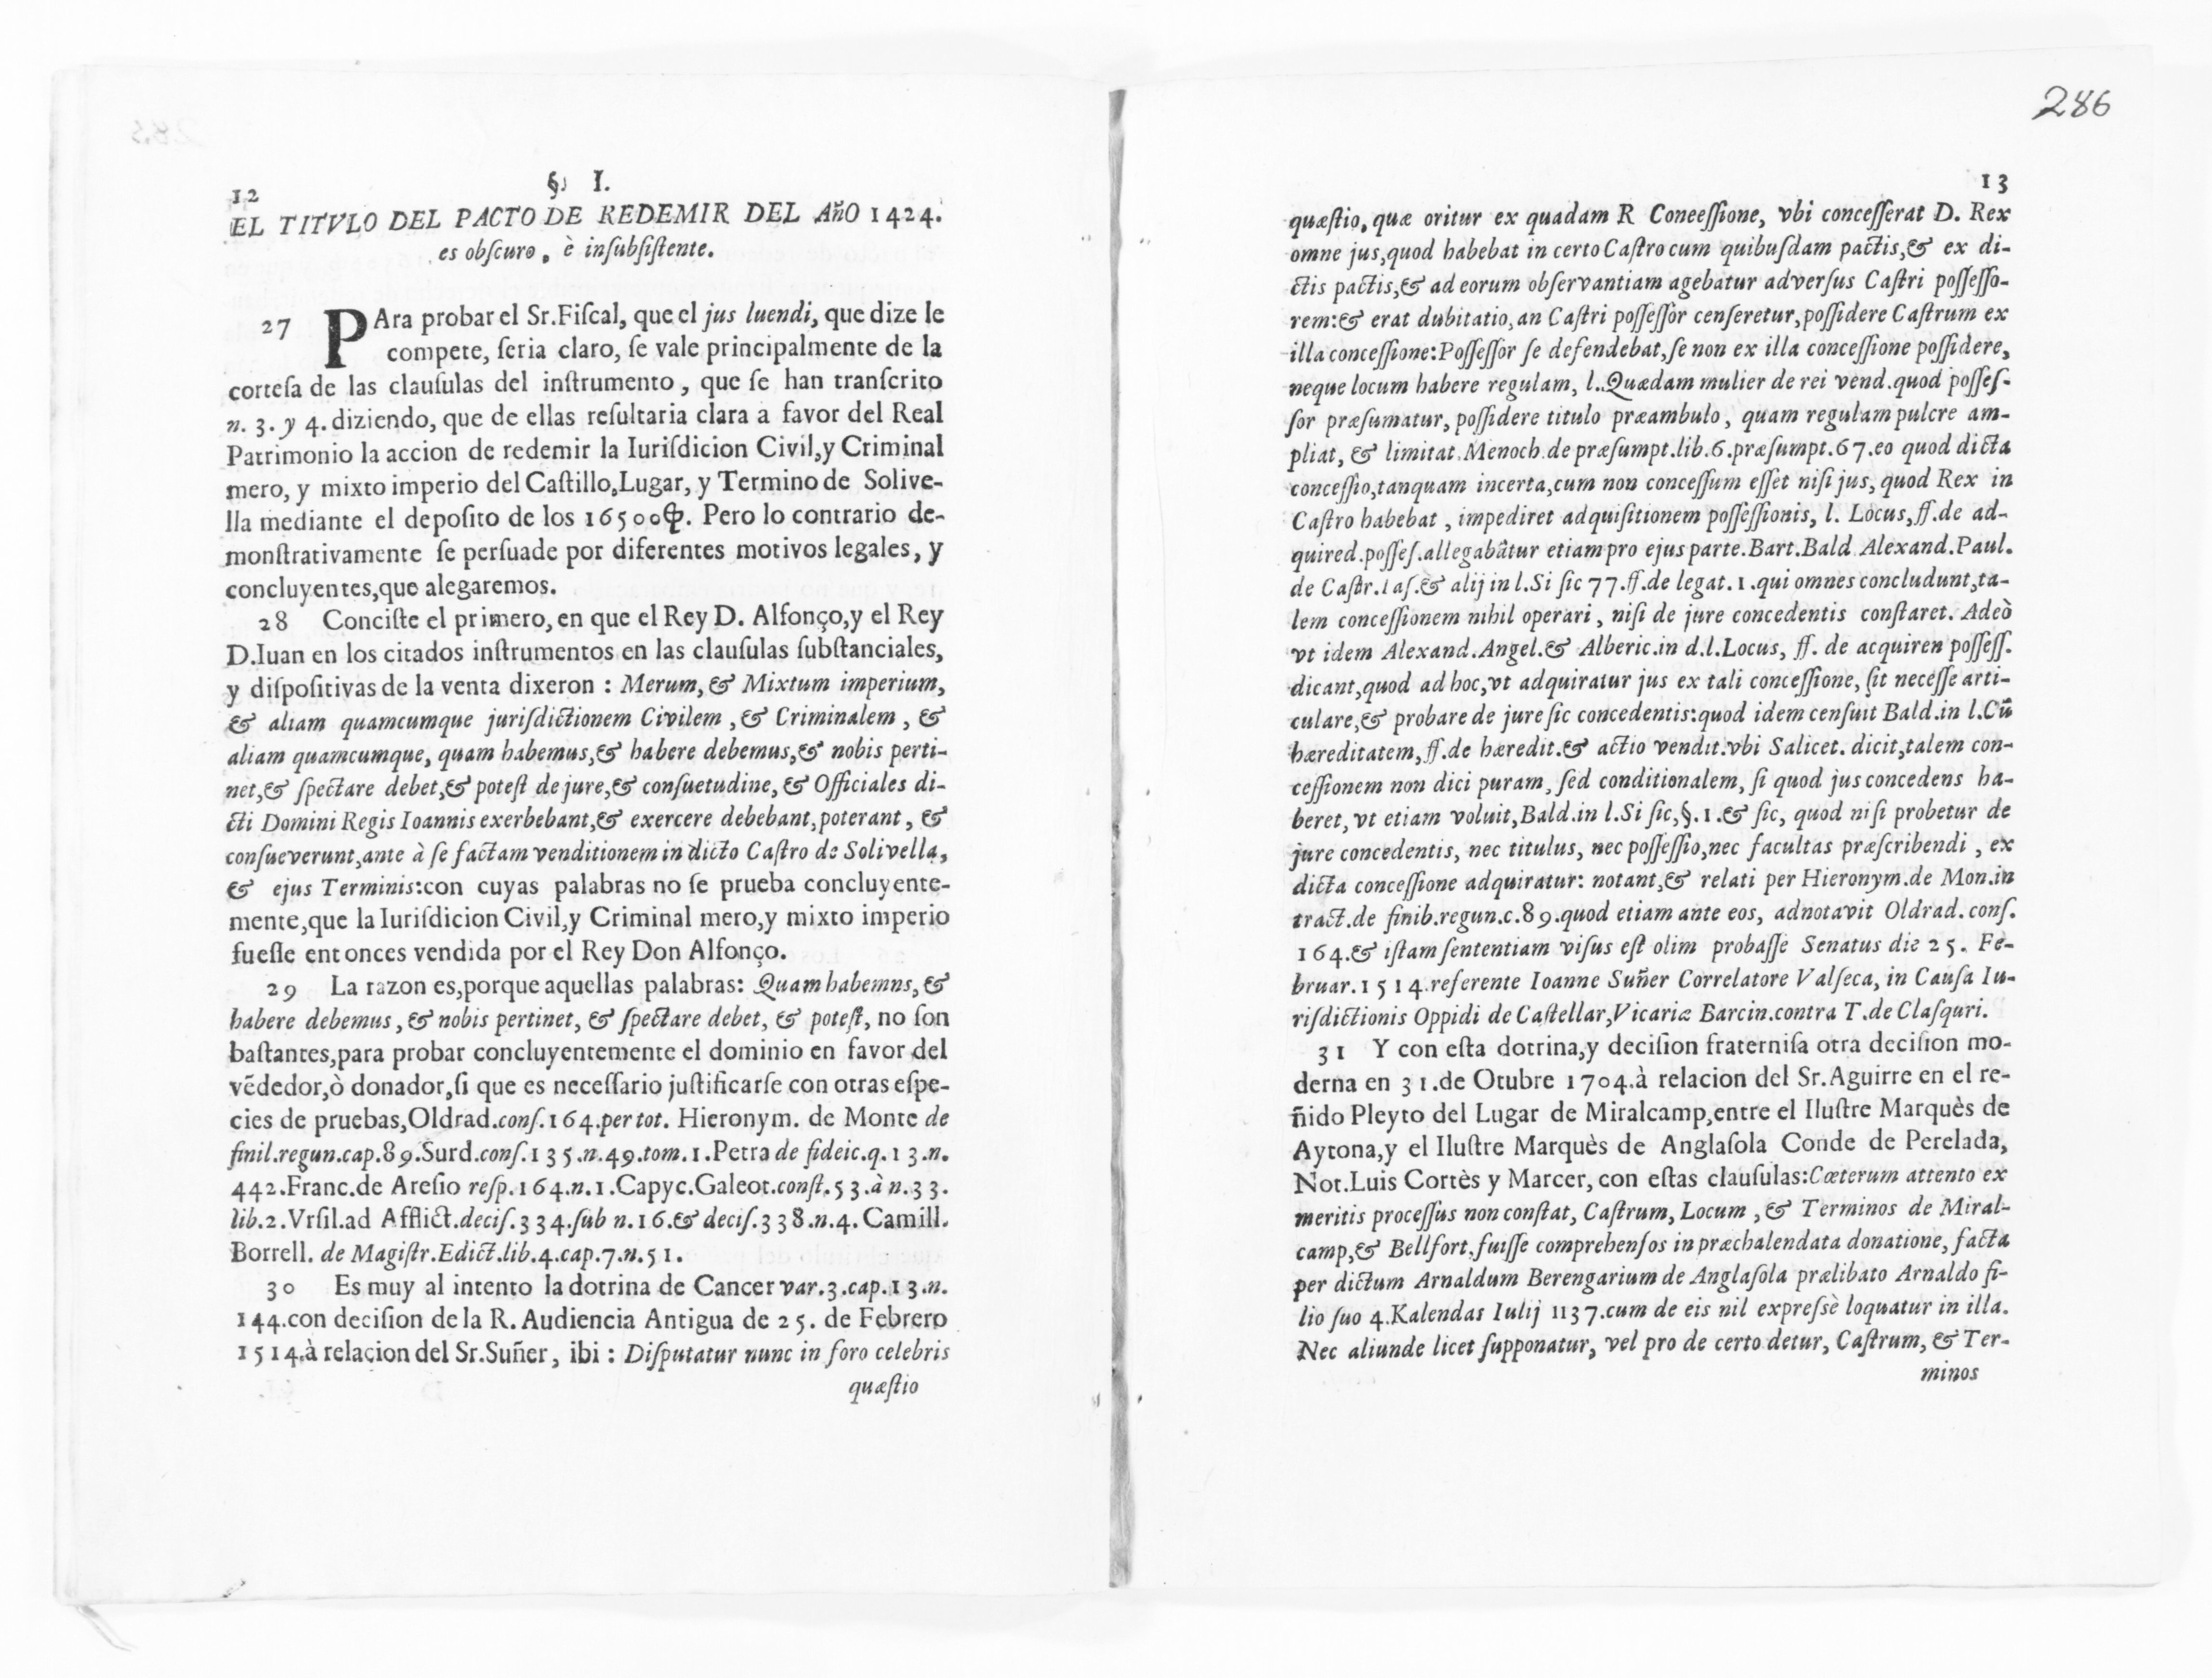 12
§. I.
EL TITVLO DEL PACTO DE REDEMIR DEL AñO 1424.
es obſcuro, è inſubſiſtente.
27 PAra probar el Sr.Fiſcal, que el jus luendi, que dize le
compete, ſeria claro, ſe vale principalmente de la
corteſa de las clauſulas del inſtrumento, que ſe han tranſcrito
n. 3. y 4. diziendo, que de ellas reſultaria clara a favor del Real
Patrimonio la accion de redemir la Iuriſdicion Civil,y Criminal
mero, y mixto imperio del Caſtillo,Lugar, y Termino de Solive-
lla mediante el depoſito de los 16500. Pero lo contrario de-
monſtrativamente ſe perſuade por diferentes motivos legales, y
concluyentes,que alegaremos.
28 Conciſte el primero, en que el Rey D. Alfonço,y el Rey
D.Iuan en los citados inſtrumentos en las clauſulas ſubſtanciales,
y diſpoſitivas de la venta dixeron : Merum,& Mixtum imperium,
& aliam quamcumque juriſdictionem Civilem ,& Criminalem , &
aliam quamcumque, quam habemus,& habere debemus,& nobis perti-
net,& ſpectare debet,& poteſt de jure,& conſuetudine, & Officiales di-
cti Domini Regis Ioannis exerbebant,& exercere debebant,poterant , &
conſueverunt,ante à ſe factam venditionem in dicto Caſtro de Solivella,
& ejus Terminis:con cuyas palabras no ſe prueba concluyente-
mente,que la Iuriſdicion Civil,y Criminal mero,y mixto imperio
fueſſe entonces vendida por el Rey Don Alfonço.
29 La razon es,porque aquellas palabras: Quam habemns, &
habere debemus, & nobis pertinet, & ſpectare debet, & poteſt, no ſon
baſtantes,para probar concluyentemente el dominio en favor del
vẽdedor,ò donador,ſi que es neceſſario juſtificarſe con otras eſpe-
cies de pruebas,Oldrad.conſ.164.per tot. Hieronym. de Monte de
finil.regun.cap.89.Surd.conſ.135.n.49.tom.1.Petra de fideic.q.13.n.
442.Franc.de Areſio reſp.164.n.1.Capyc.Galeot.conſt.53.à n.33.
lib.2.Vrſil.ad Afflict.deciſ.334.ſub n.16.& deciſ.338.n.4. Camill.
Borrell. de Magiſtr.Edict.lib.4.cap.7.n.51.
30 Es muy al intento la dotrina de Cancer var.3.cap.13.n.
144.con deciſion de la R. Audiencia Antigua de 25. de Febrero
1514.à relacion del Sr.Suñer, ibi : Diſputatur nunc in foro celebris
quæſtio
286
13
quæſtio, quæ oritur ex quadam R Coneeſſione, vbi conceſſerat D. Rex
omne jus,quod habebat in certo Caſtro cum quibuſdam pactis,& ex di-
ctis pactis,& ad eorum obſervantiam agebatur adverſus Caſtri poſſeſſo-
rem:& erat dubitatio,an Caſtri poſſeſſor cenſeretur,poſſidere Caſtrum ex
illa conceſſione:Poſſeſſor ſe defendebat,ſe non ex illa conceſſione poſſidere,
neque locum habere regulam, l.Quædam mulier de rei vend.quod poſſeſ-
ſor præſumatur, poſſidere titulo præambulo, quam regulam pulcre am-
pliat, & limitat Menoch.de præſumpt.lib.6.præſumpt.67.eo quod dicta
conceſſio,tanquam incerta,cum non conceſſum eſſet niſi jus, quod Rex in
Caſtro habebat , impediret adquiſitionem poſſeſſionis, l. Locus,ff.de ad-
quired.poſſeſ.allegabãtur etiam pro ejus parte.Bart.Bald.Alexand.Paul.
de Caſtr.Iaſ.& alij in l.Si ſic 77.ff.de legat.1.qui omnes concludunt,ta-
lem conceſſionem nihil operari, niſi de jure concedentis conſtaret. Adeò
vt idem Alexand.Angel.& Alberic.in d.l.Locus, ff. de acquiren poſſeſſ.
dicant,quod ad hoc,vt adquiratur jus ex tali conceſſione, ſit neceſſe arti-
culare,& probare de jure ſic concedentis:quod idem cenſuit Bald.in l.Cũ
hæreditatem,ff.de hæredit.& actio vendit.vbi Salicet. dicit,talem con-
ceſſionem non dici puram, ſed conditionalem, ſi quod jus concedens ha-
beret, vt etiam voluit,Bald.in l.Si ſic,§.1.& ſic, quod niſi probetur de
jure concedentis, nec titulus, nec poſſeſſio,nec facultas præſcribendi , ex
dicta conceſſione adquiratur: notant,& relati per Hieronym.de Mon.in
tract.de finib.regun.c.89.quod etiam ante eos, adnotavit Oldrad.conſ.
164.& iſtam ſententiam viſus eſt olim probaſſe Senatus die 25. Fe-
bruar.1514.referente Ioanne Suñer Correlatore Valſeca, in Cauſa Iu-
riſdictionis Oppidi de Caſtellar,Vicariæ Barcin.contra T.de Claſquri.
31 Y con eſta dotrina,y deciſion fraterniſa otra deciſion mo-
derna en 31.de Otubre 1704.à relacion del Sr.Aguirre en el re-
ñido Pleyto del Lugar de Miralcamp,entre el Iluſtre Marquès de
Aytona,y el Iluſtre Marquès de Anglaſola Conde de Perelada,
Not.Luis Cortès y Marcer, con eſtas clauſulas:Cæterum attento ex
meritis proceſſus non conſtat, Caſtrum, Locum ,& Terminos de Miral-
camp,& Bellfort,fuiſſe comprehenſos in præchalendata donatione, facta
per dictum Arnaldum Berengarium de Anglaſola prælibato Arnaldo fi-
lio ſuo 4.Kalendas Iulij 1137.cum de eis nil expreſsè loquatur in illa.
Nec aliunde licet ſupponatur, vel pro de certo detur, Caſtrum, & Ter-
minos